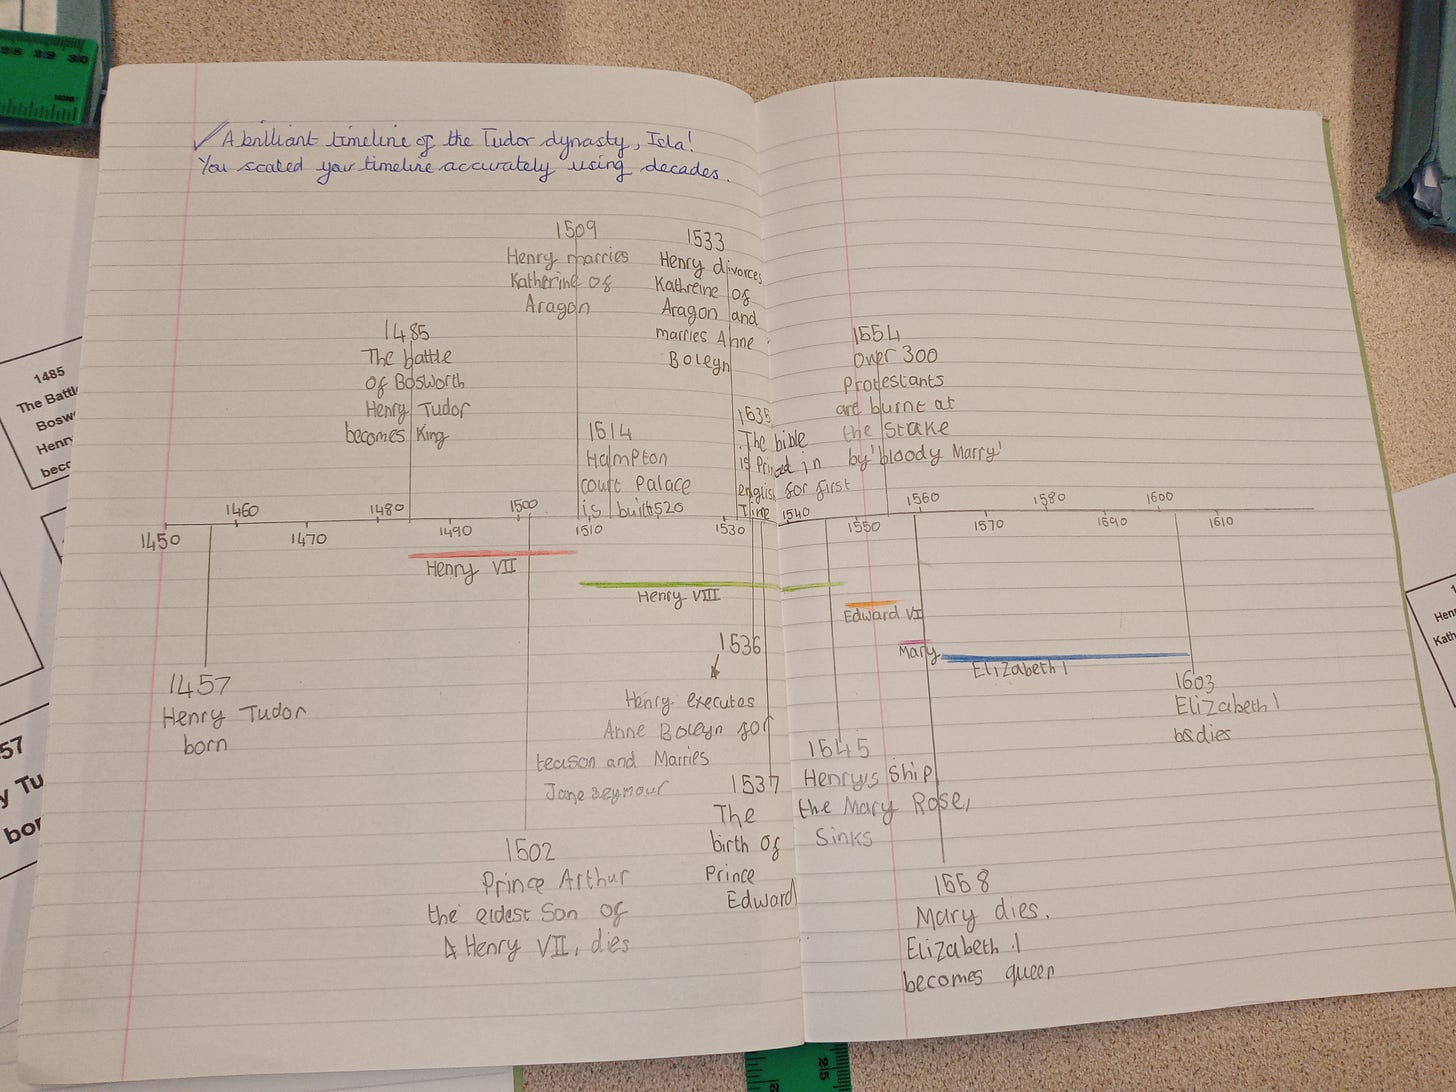 28 29 30
✓ A brilliant timeline of the Tudor dynasty, Isla!
You scaled your timeline accurately using decades.
1509
Henry marries
Katherine of
Aragon
1533
Henry divorces
Kathreine of
Aragon and
marries Anne
Boleyn
1485
The battle
of Bosworth
Henry Tudor
becomes King
1514
Hampton
court Palace
is built
1535
The bible
is Printed in
english for first
Time
1554
Over 300
Protestants
are burnt at
the stake
by 'bloody Marry'
1450
1460
1470
1480
1490
1500
1510
1520
1530
1540
1550
1560
1570
1580
1590
1600
1610
Henry VII
Henry VIII
Edward VI
Mary
Elizabeth I
1457
Henry Tudor
born
1502
Prince Arthur
the eldest Son of
Henry VII, dies
1536
Henry executes
Anne Boleyn for
teason and Marries
Jane seymour
1537
The
birth of
Prince
Edward
1545
Henrys Ship
the Mary Rose,
Sinks
1558
Mary dies.
Elizabeth I
becomes queen
1603
Elizabeth I
dies
1485
The Battl
Bosw
Henr
bec
57
y Tu
bor
Hen
Kath
25